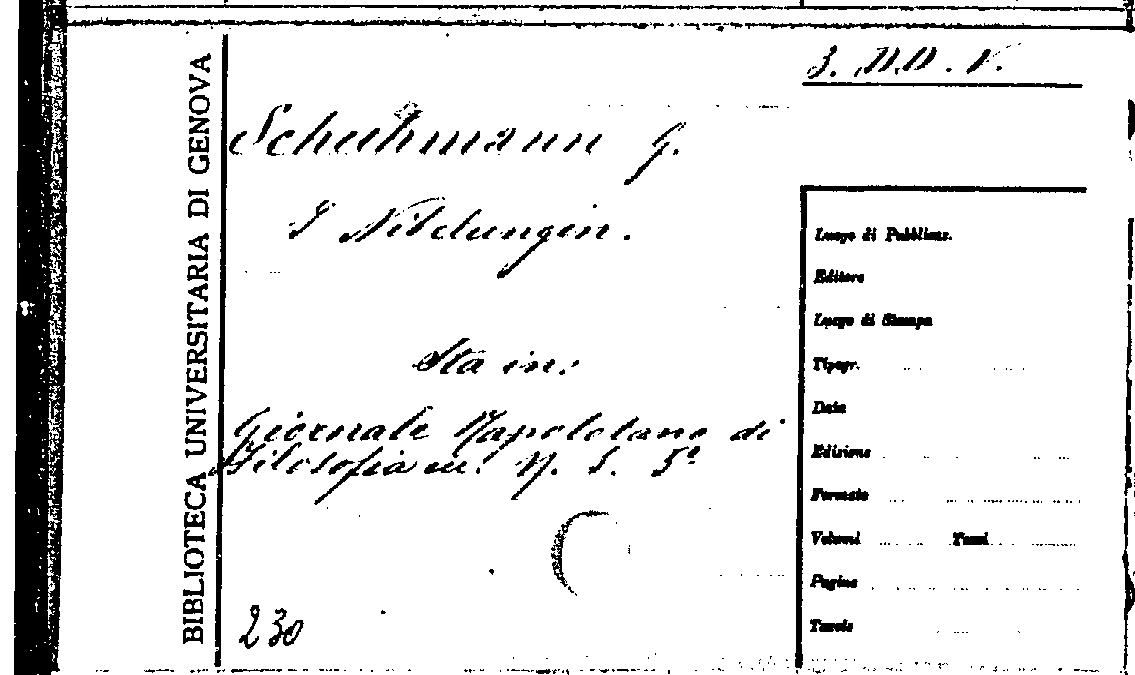 BIBLIOTECA UNIVERSITARIA DI GENOVA
3. DD. V.
Schuhmann G.
I Nibelungin.
Sta in:
Giornale Napoletano di
Filosofia ec. N. S. 5º
230
Luogo di Pubblicaz.
Editore
Luogo di Stampa
Tipogr.
Data
Edizione
Formato
Volumi Tomi
Pagine
Tavole